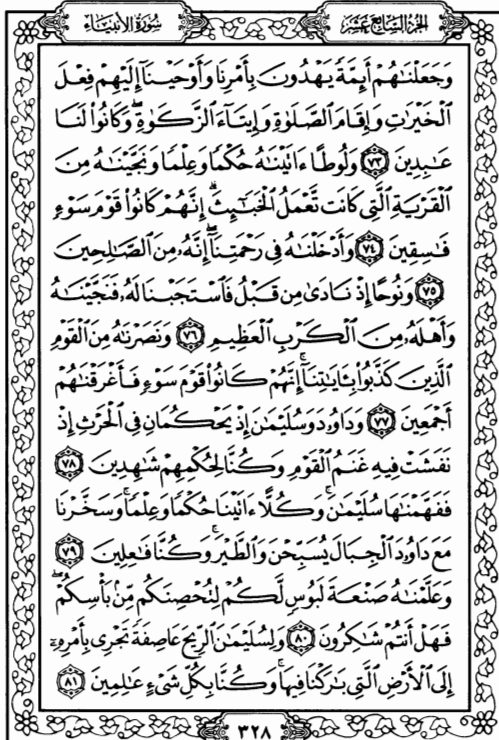 سُورَةُ الأَنبِيَاءِ الجُزْءُ السَّابِعَ عَشَرَ
وَجَعَلْنَٰهُمْ أَئِمَّةً يَهْدُونَ بِأَمْرِنَا وَأَوْحَيْنَآ إِلَيْهِمْ فِعْلَ
ٱلْخَيْرَٰتِ وَإِقَامَ ٱلصَّلَوٰةِ وَإِيتَآءَ ٱلزَّكَوٰةِ ۖ وَكَانُوا۟ لَنَا
عَٰبِدِينَ ٧٣ وَلُوطًا ءَاتَيْنَٰهُ حُكْمًا وَعِلْمًا وَنَجَّيْنَٰهُ مِنَ
ٱلْقَرْيَةِ ٱلَّتِى كَانَت تَّعْمَلُ ٱلْخَبَٰٓئِثَ ۗ إِنَّهُمْ كَانُوا۟ قَوْمَ سَوْءٍ
فَٰسِقِينَ ٧٤ وَأَدْخَلْنَٰهُ فِى رَحْمَتِنَآ ۖ إِنَّهُۥ مِنَ ٱلصَّٰلِحِينَ
٧٥ وَنُوحًا إِذْ نَادَىٰ مِن قَبْلُ فَٱسْتَجَبْنَا لَهُۥ فَنَجَّيْنَٰهُ
وَأَهْلَهُۥ مِنَ ٱلْكَرْبِ ٱلْعَظِيمِ ٧٦ وَنَصَرْنَٰهُ مِنَ ٱلْقَوْمِ
ٱلَّذِينَ كَذَّبُوا۟ بِـَٔايَٰتِنَآ ۚ إِنَّهُمْ كَانُوا۟ قَوْمَ سَوْءٍ فَأَغْرَقْنَٰهُمْ
أَجْمَعِينَ ٧٧ وَدَاوُۥدَ وَسُلَيْمَٰنَ إِذْ يَحْكُمَانِ فِى ٱلْحَرْثِ إِذْ
نَفَشَتْ فِيهِ غَنَمُ ٱلْقَوْمِ وَكُنَّا لِحُكْمِهِمْ شَٰهِدِينَ ٧٨
فَفَهَّمْنَٰهَا سُلَيْمَٰنَ ۚ وَكُلًّا ءَاتَيْنَا حُكْمًا وَعِلْمًا ۚ وَسَخَّرْنَا
مَعَ دَاوُۥدَ ٱلْجِبَالَ يُسَبِّحْنَ وَٱلطَّيْرَ ۚ وَكُنَّا فَٰعِلِينَ ٧٩
وَعَلَّمْنَٰهُ صَنْعَةَ لَبُوسٍ لَّكُمْ لِتُحْصِنَكُم مِّنۢ بَأْسِكُمْ ۖ
فَهَلْ أَنتُمْ شَٰكِرُونَ ٨٠ وَلِسُلَيْمَٰنَ ٱلرِّيحَ عَاصِفَةً تَجْرِى بِأَمْرِهِۦٓ
إِلَى ٱلْأَرْضِ ٱلَّتِى بَٰرَكْنَا فِيهَا ۚ وَكُنَّا بِكُلِّ شَىْءٍ عَٰلِمِينَ ٨١
٣٢٨